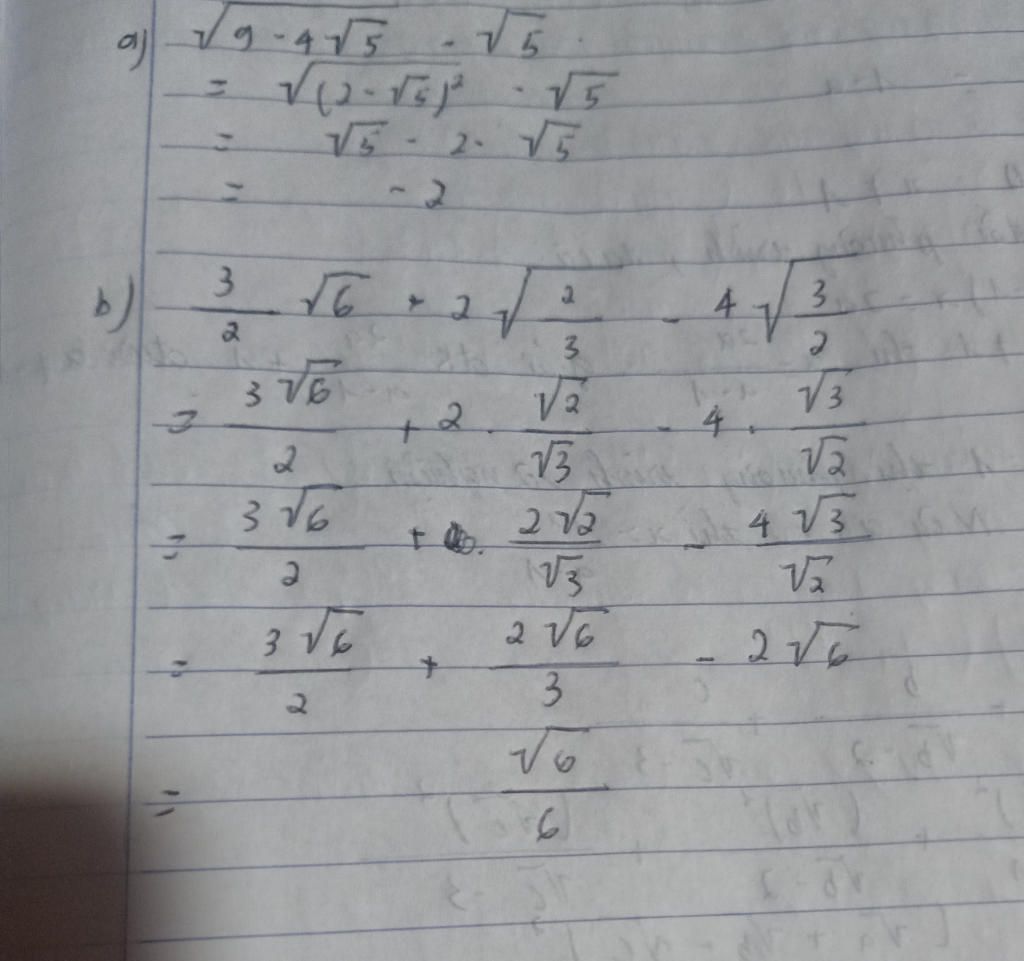 a) √(9 - 4√5) - √5
= √((2 - √5)²) - √5
= √5 - 2 - √5
= - 2
b) 3/2 √6 + 2√(2/3) - 4√(3/2)
= 3√6/2 + 2 . √2/√3 - 4 . √3/√2
= 3√6/2 + 2√2/√3 - 4√3/√2
= 3√6/2 + 2√6/3 - 2√6
= √6/6